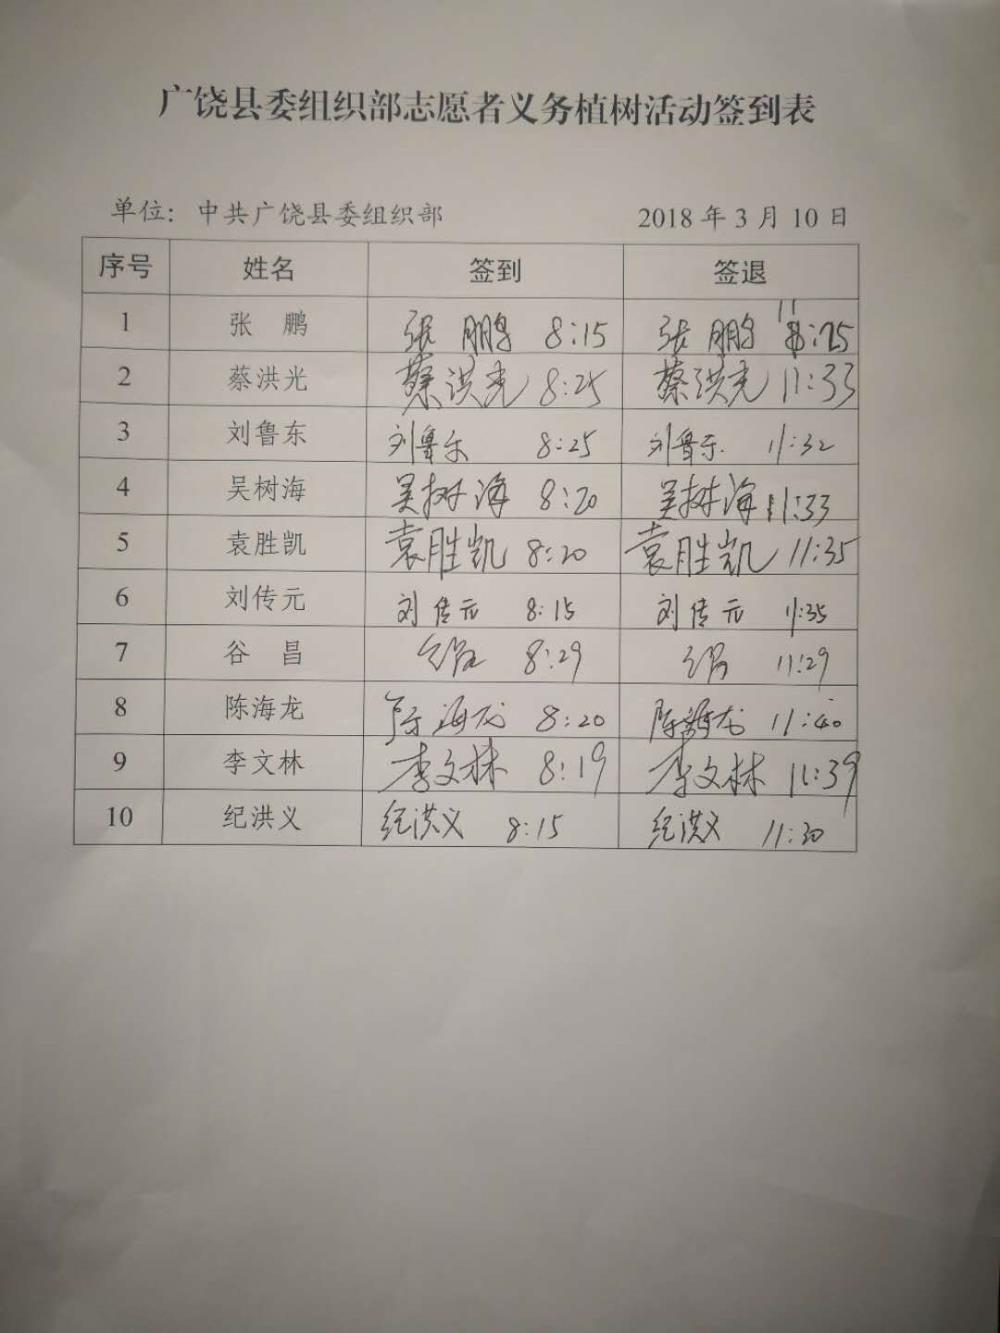 广饶县委组织部志愿者义务植树活动签到表
单位：中共广饶县委组织部 2018年3月10日
序号 姓名 签到 签退
1 张 鹏 张鹏 8:15 张鹏 11:25
2 蔡洪光 蔡洪光 8:25 蔡洪光 11:33
3 刘鲁东 刘鲁东 8:25 刘鲁东 11:32
4 吴树海 吴树海 8:20 吴树海 11:33
5 袁胜凯 袁胜凯 8:20 袁胜凯 11:35
6 刘传元 刘传元 8:15 刘传元 11:35
7 谷 昌 谷昌 8:29 谷昌 11:29
8 陈海龙 陈海龙 8:20 陈海龙 11:40
9 李文林 李文林 8:19 李文林 11:39
10 纪洪义 纪洪义 8:15 纪洪义 11:30